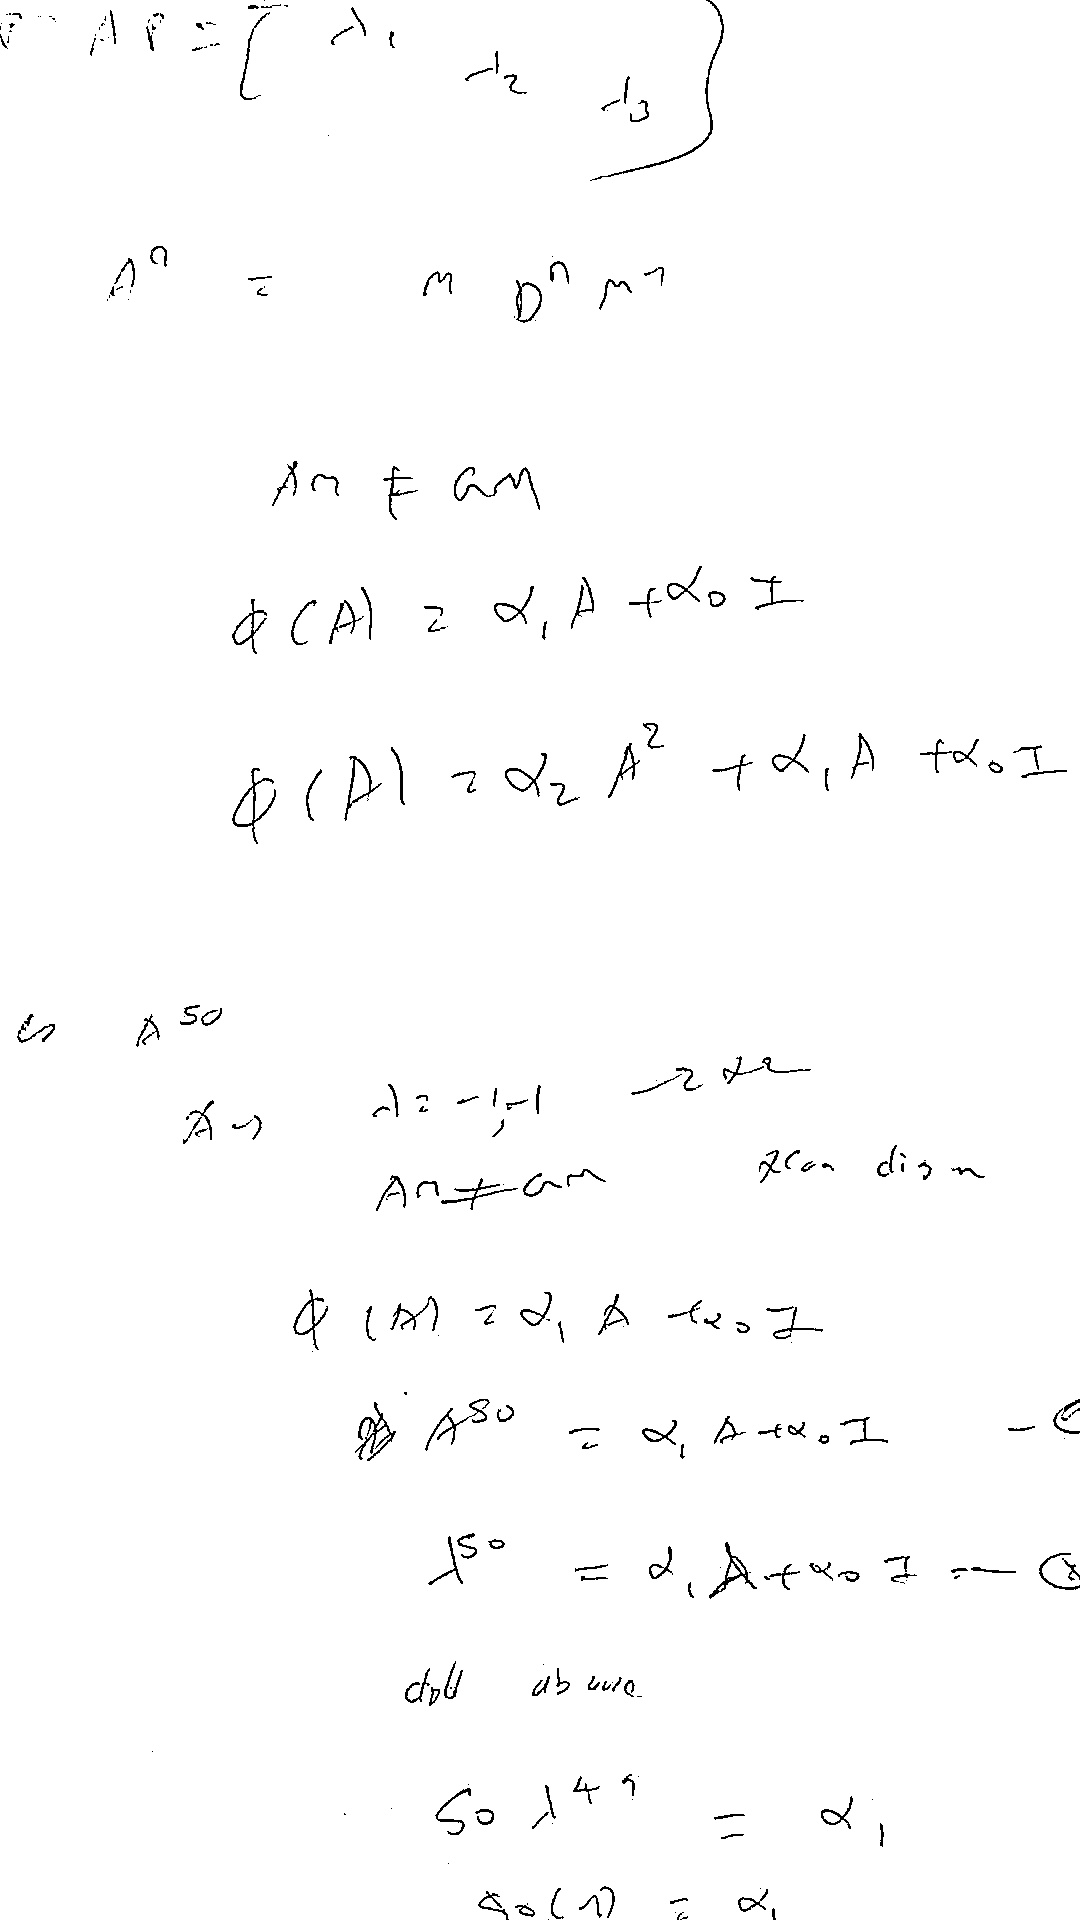 AP = [ λ₁
λ₂
λ₃ ]
Aⁿ = M Dⁿ M⁻¹
Am ≠ GM
Φ(A) = α₁A + α₀I
Φ(A) = α₂A² + α₁A + α₀I
A⁵⁰
λ = -1, -1
Am ≠ Gm
Φ(A) = α₁A + α₀I
A⁵⁰ = α₁A + α₀I -
λ⁵⁰ = α₁A + α₀I -
above
50 λ⁴⁹ = α₁
= α₁